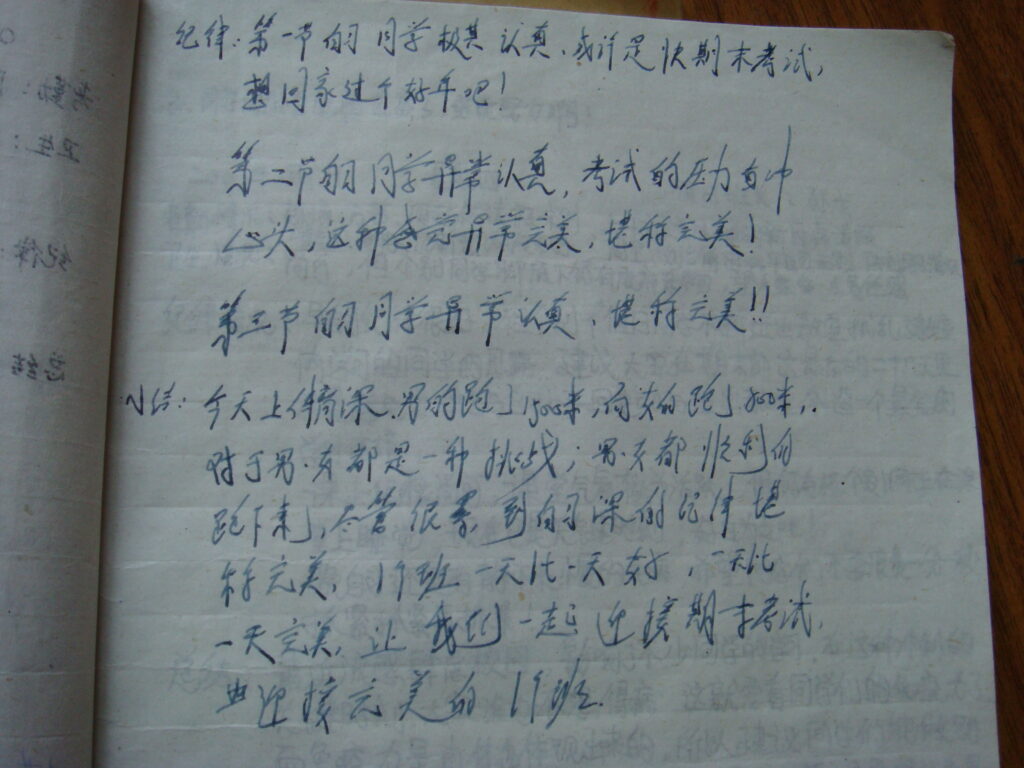 纪律:第一节自习同学极其认真,或许是快期末考试,
想回家过个好年吧!
第二节自习同学异常认真,考试的压力直冲
心头,这种感觉异常完美,堪称完美!
第三节自习同学异常认真,堪称完美!!
小结:今天上体育课,男的跑了1500米,而女的跑了800米,
对于男.女都是一种挑战;男.女都顺利的
跑下来了,尽管很累,到自习课的纪律堪
称完美,19班一天比一天好,一天比
一天完美,让我们一起迎接期末考试,
也迎接完美的19班.
考勤:
卫生:
纪律:
总结